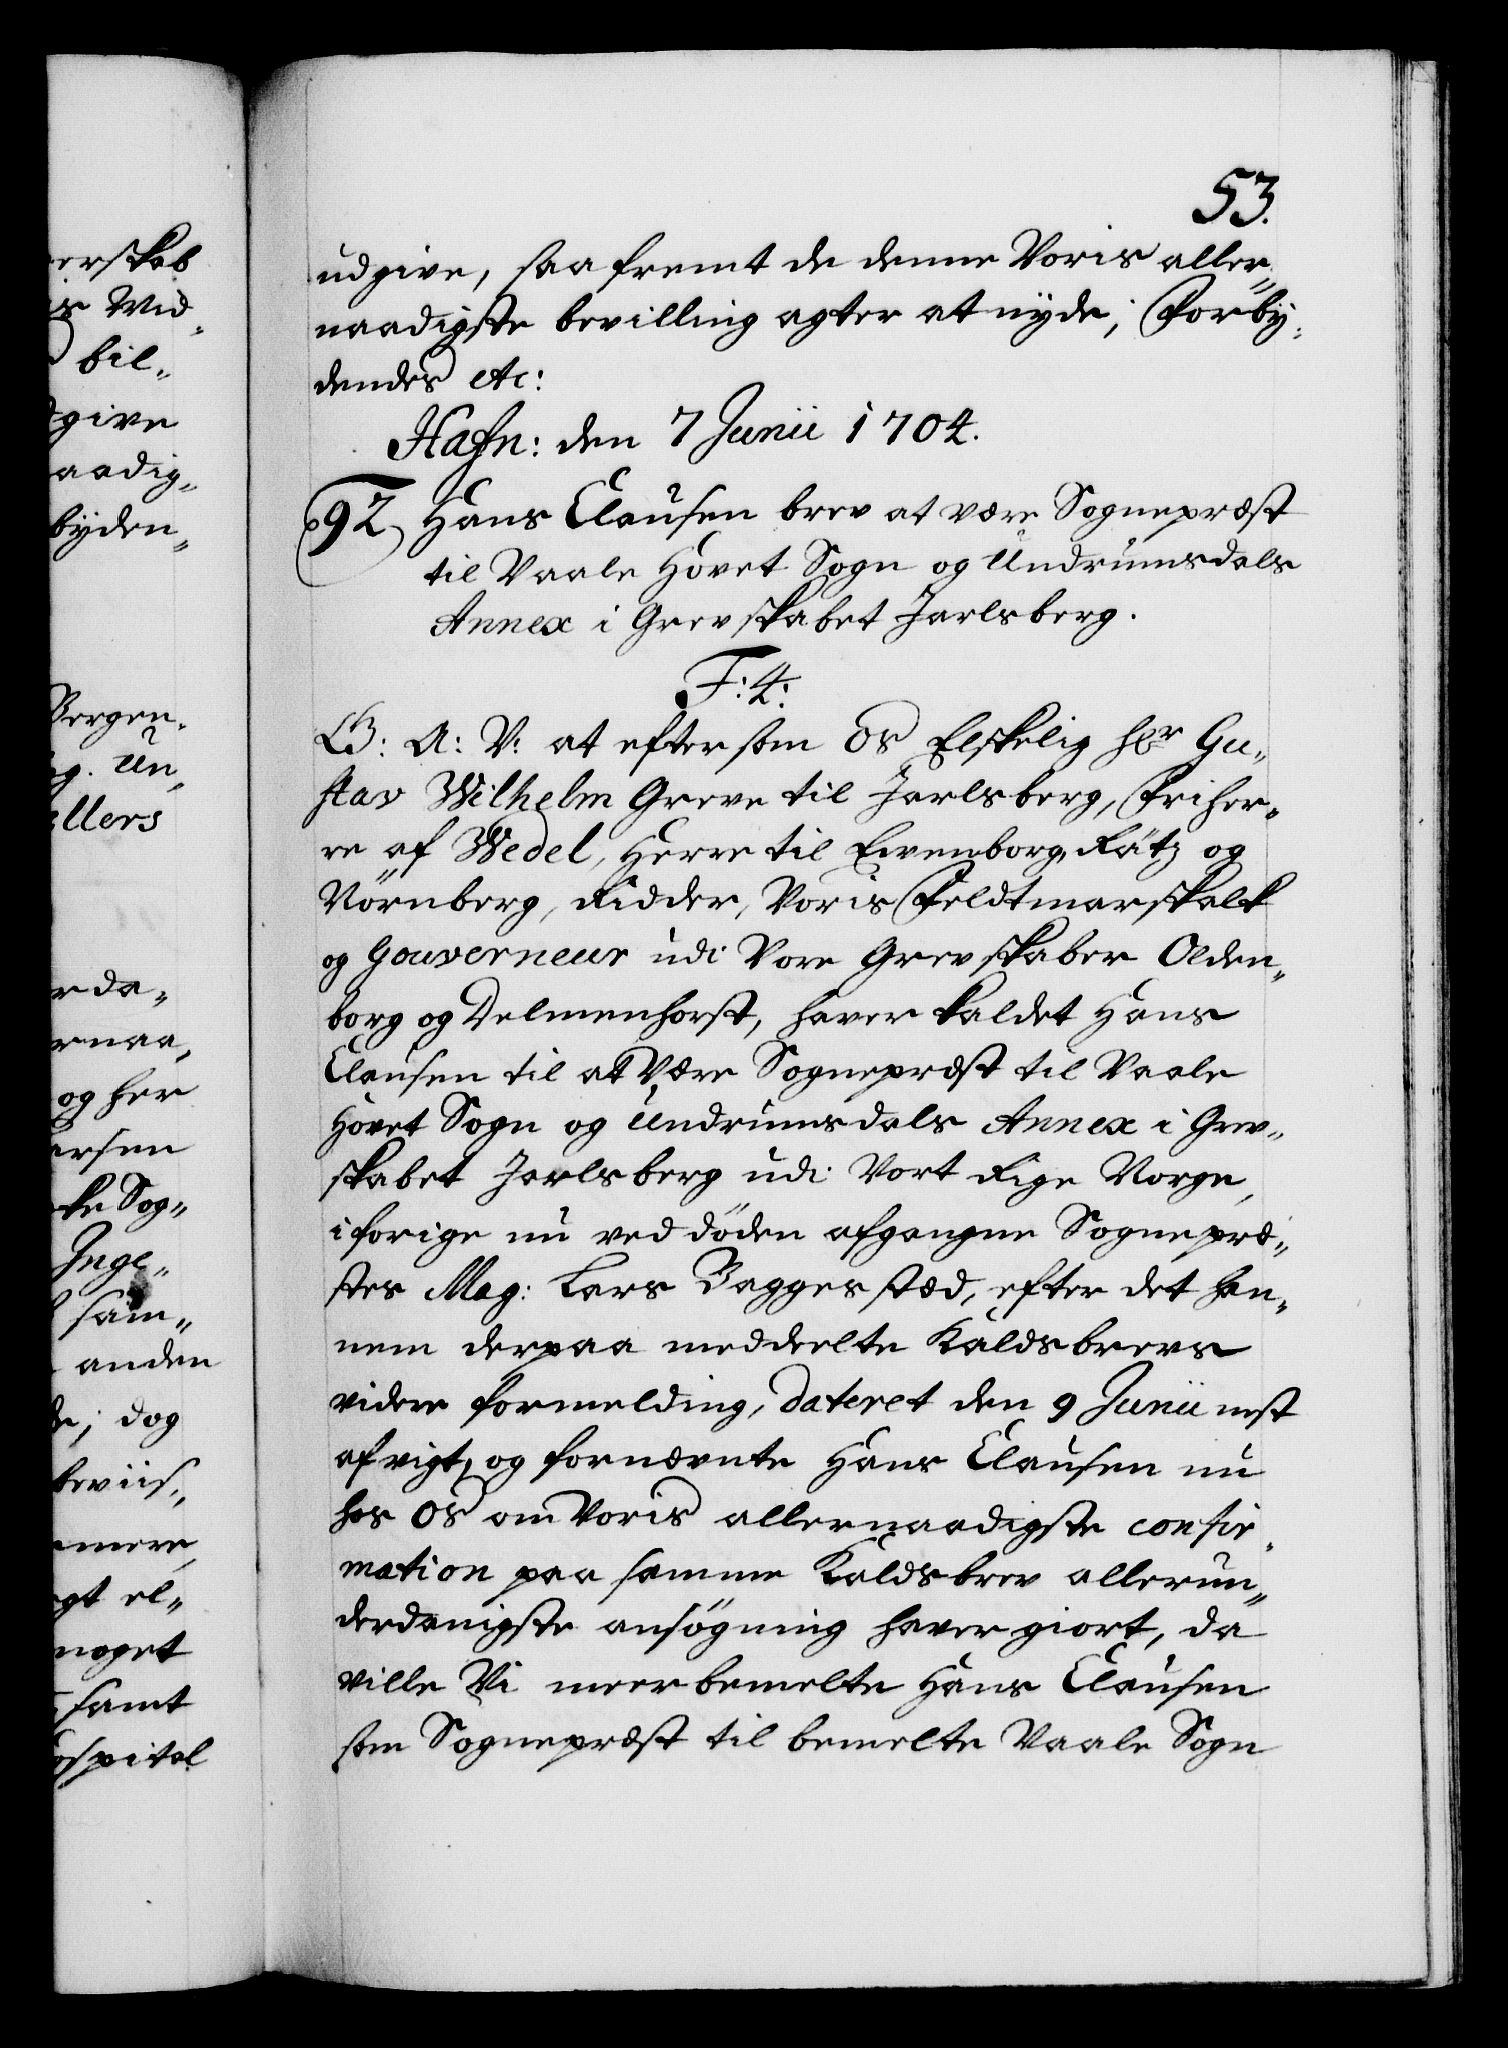 53.
udgive, saa fremt de denne Voris aller„
naadigste bevilling agter at nyde; Forby„
dendes etc:
Hafn: den 7 Junii 1704.
92 Hans Clausen brev at være Sognepræst
til Vaale Hovet Sogn og Undrumsdals
Annex i Grevskabet Jarlsberg.
F: 4:
G: A: V: at eftersom Os Elskelig Hr Gu„
stav Wilhelm Greve til Jarlsberg, Friher„
re af Wedel, Herre til Evenborg, Rätz og
Nörnberg, Ridder, Voris Feldtmarskalk
og Gouverneur udi Vore Grevskaber Olden„
borg og Delmenhorst, haver kaldet Hans
Clausen til at Være Sognepræst til Vaale
Hovet Sogn og Undrumsdals Annex i Grev„
skabet Jarlsberg udi Vort Rige Norge,
i forige nu ved döden afgangne Sognepræ„
stes Mag: Lars Bagges stæd, efter det han„
nem derpaa meddeelte Kaldsbrevs
videre formelding, dateret den 9 Junii nest
afvigt, og fornævnte Hans Clausen nu
hos Os om Voris allernaadigste confir„
mation paa samme Kaldsbrev allerun„
derdanigste ansögning haver giort, da
ville Vi meerbemelte Hans Clausen
som Sognepræst til bemelte Vaale Sogn
erskab
is Vid„
bil„
give
aadig„
byden„
Bergen„
og. Un„
ellers
r da„
rnaa„
og her
ersen
ke Sog„
Inge„
sam„
anden
de; dog
beviis„
mere,
gt el„
noget
samt
ospital